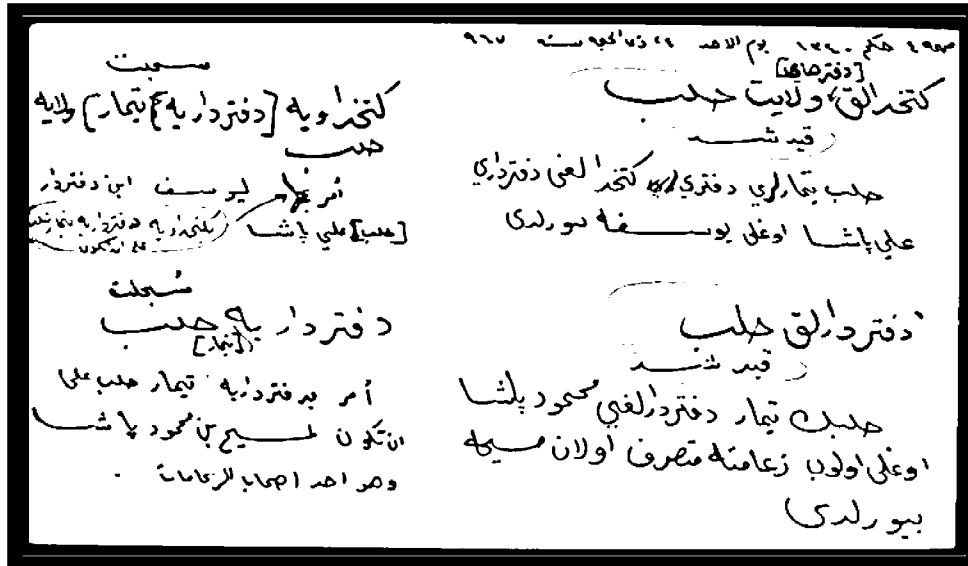 ص ٤٩٣ حكم ١٣٤٠ يوم الاحد ٢٤ ذي الحجه سنه ٩٦٧
[دفترخاقة]
كتخدالق ولايت حلب
قيد شد
حلب تيمارلري دفتري كتخدالغى دفترداري
علي پاشا اوغلى يوسفه بيورلدى
دفتردارلق حلب
قيد شد
حلبك تيمار دفتردارلغي محمود پاشا
اوغلى اولوب زعامته متصرف اولان مسيحه
بيورلدى
سجلت
كتخداويه [دفترداريه تيمار] ولايه
حلب
أمر بها ليوسف ابن دفتردار
[حلب] علي پاشا
سُجلت
دفتردارية حلب
[تيمار]
أمر بدفتردارية تيمار حلب على
ان تكون لمسيح بن محمود پاشا
وهو احد اصحاب الزعامات .